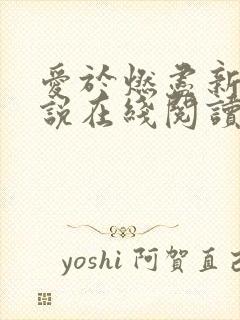 愛於燃盡新
說在綫閱讀
yoshi 阿賀直己